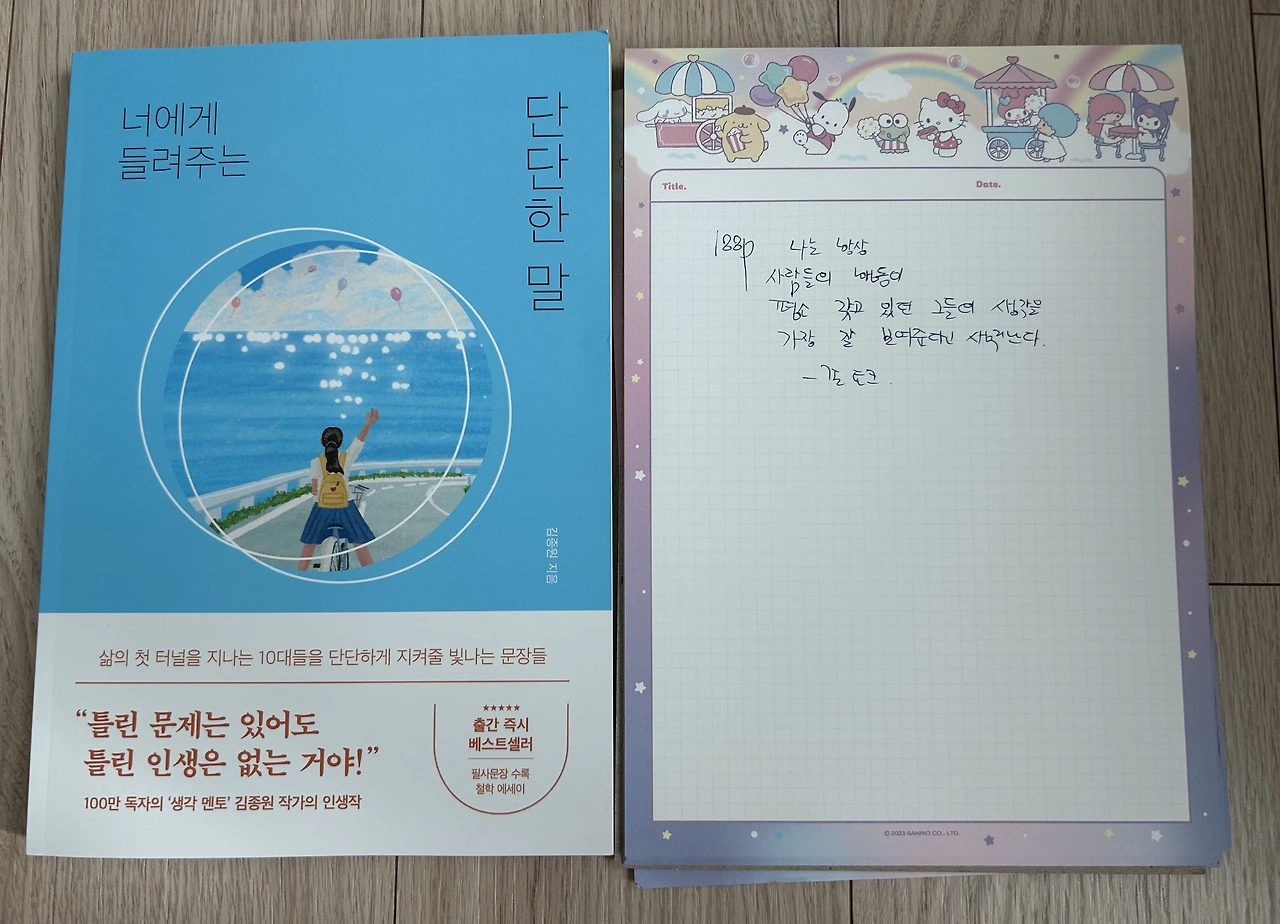 너에게
들려주는
단단한 말
김종원 지음
삶의 첫 터널을 지나는 10대들을 단단하게 지켜줄 빛나는 문장들
“틀린 문제는 있어도
틀린 인생은 없는 거야!”
100만 독자의 ‘생각 멘토’ 김종원 작가의 인생작
★★★★★
출간 즉시
베스트셀러
필사문장 수록
철학 에세이
Title.
Date.
133p 나는 항상
사람들의 행동이
평소 갖고 있던 그들의 생각을
가장 잘 보여준다고 생각한다.
- 존 로크.
© 2023 SANRIO CO., LTD.